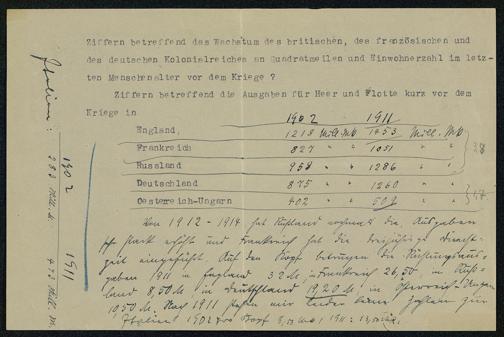 Ziffern betreffend das Wachstum des britischen, des französischen und
des deutschen Kolonialreiches an Quadratmeilen und Einwohnerzahl im letz-
ten Menschenalter vor dem Kriege ?
Ziffern betreffend die Ausgaben für Heer und Flotte kurz vor dem
Kriege in
1902 1911
England, 1218 Mill. Mk 1453 Mill. Mk
Frankreich 827 " " 1051 " "
Russland 958 " " 1286 " "
Deutschland 875 " " 1260 " "
Oesterreich-Ungarn 402 " " 502 "
Von 1912 - 1914 hat Rußland die Ausgaben
stark erhöht und Frankreich hat die dreijährige Dienst-
zeit eingeführt. Auf den Kopf betrugen die Rüstungsaus-
gaben 1911 in England 32 M, in Frankreich 26,50, in Ruß-
land 8,50 M in Deutschland 19,20 M in Österreich-Ungarn
10,50 M. Nach 1911 mir leider keine Zahlen zur
Italien 1902 pro Kopf 1911:
Italien: 1902 283 Mill. M. 1911 473 Mill. M.